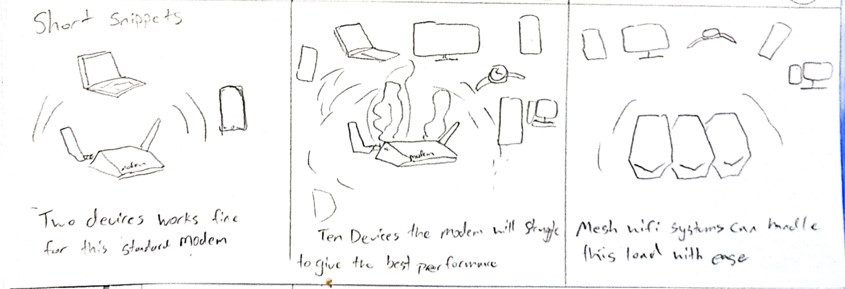 Short Snippets
modem
Two devices works fine
for this standard modem
modem
Ten Devices the modem will struggle
to give the best performance
Mesh wifi systems can handle
this load with ease